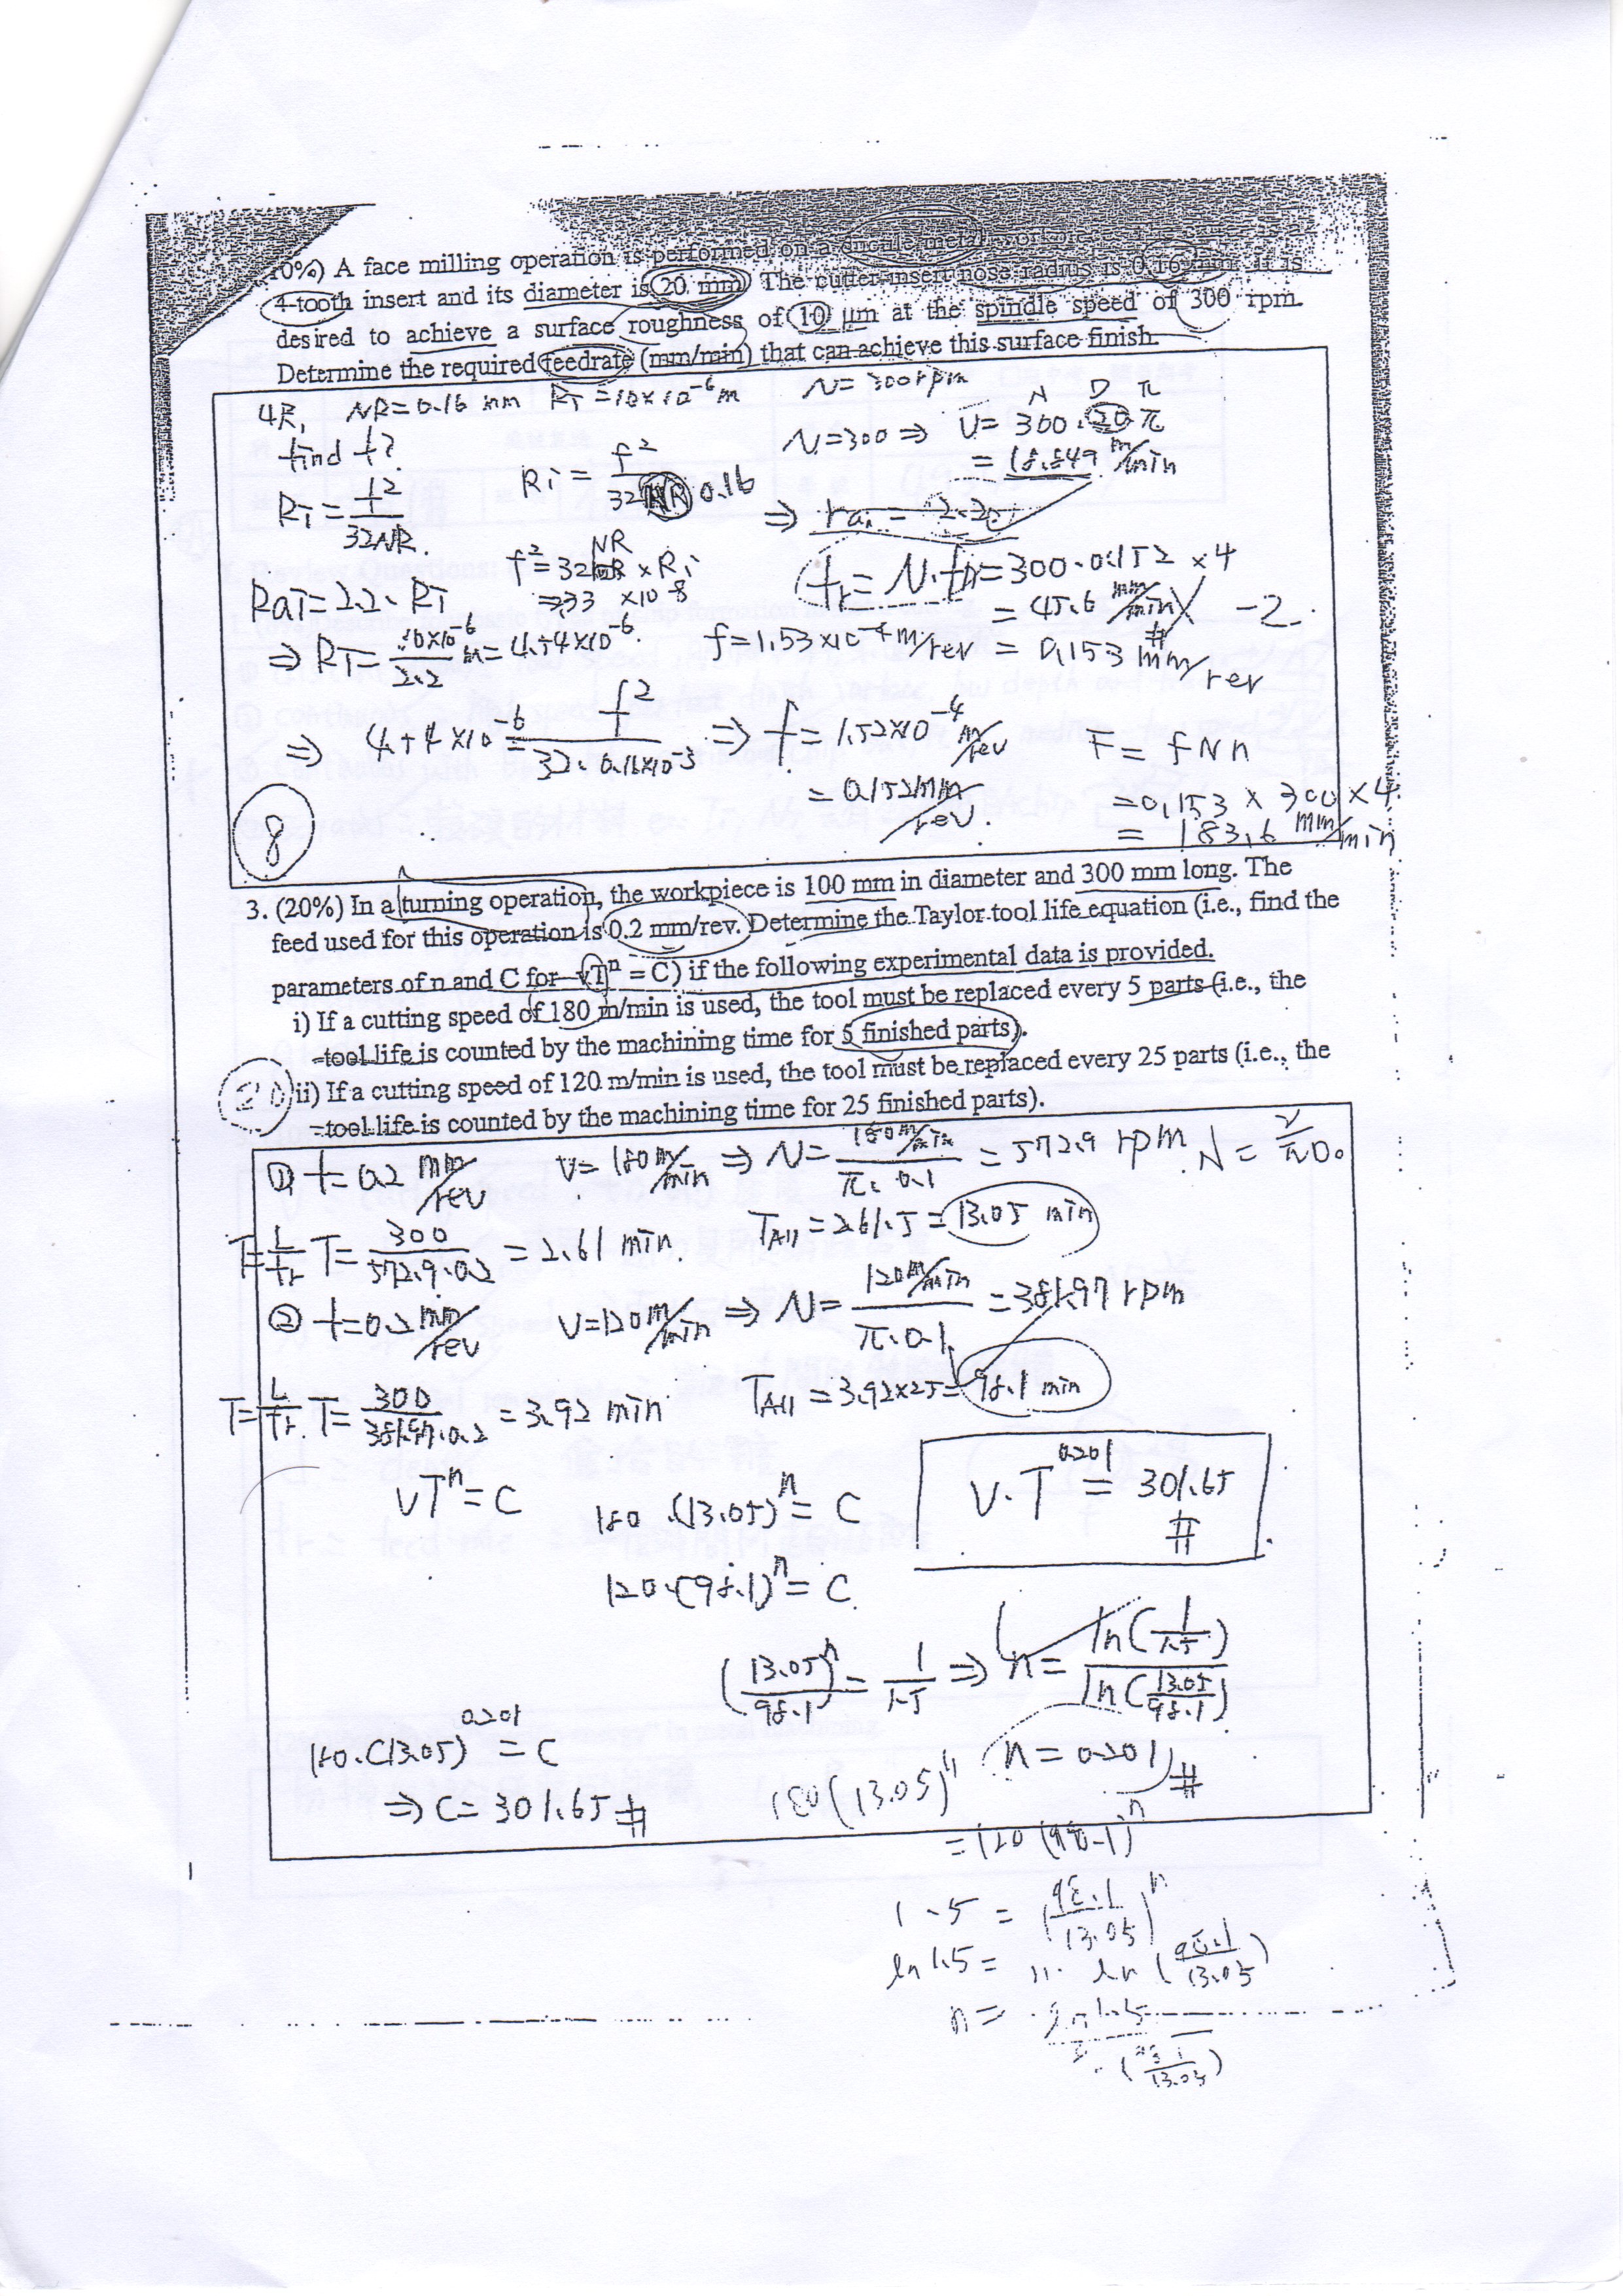 10%) A face milling operation is performed on a ductile metal
4-tooth insert and its diameter is 20 mm. The cutter insert nose radius is 0.16 mm. It is
desired to achieve a surface roughness of 10 μm at the spindle speed of 300 rpm.
Determine the required feedrate (mm/min) that can achieve this surface finish.
4R, NR=0.16 mm RT=10×10^-6 m N=300rpm
find f?
N=300 ⇒ V=300.20π
N D π
= 18.849 m/min
Ri = f²/32NR.
Ri = f²/32 0.16
⇒ rai = 2.2
f²=32NR × Ri
⇒33 ×10^-8
fr = N.f.n=300.0.152 ×4
= 45.6 mm/min
-2.
Rai=2.2.Ri
⇒ Ri= 10×10^-6/2.2 m=4.54×10^-6.
f=1.53×10^-4 m/rev = 0.153 mm/rev
⇒ 4.54×10^-6 = f²/32.0.16×10^-3 ⇒ f= 1.52×10^-4 m/rev
= 0.152mm/rev.
F = fNn
=0.153 × 300 ×4
= 183.6 mm/min
8
3. (20%) In a turning operation, the workpiece is 100 mm in diameter and 300 mm long. The
feed used for this operation is 0.2 mm/rev. Determine the Taylor tool life equation (i.e., find the
parameters of n and C for vT^n = C) if the following experimental data is provided.
i) If a cutting speed of 180 m/min is used, the tool must be replaced every 5 parts (i.e., the
tool life is counted by the machining time for 5 finished parts).
20
ii) If a cutting speed of 120 m/min is used, the tool must be replaced every 25 parts (i.e., the
tool life is counted by the machining time for 25 finished parts).
① f=0.2 mm/rev V=180 m/min ⇒ N= 180m/min/π.0.1 = 572.9 rpm. N= v/πD.
T=L/fr T= 300/572.9.0.2 = 2.61 min. TAll = 2.61.5=13.05 min
② f=0.2 mm/rev V=120 m/min ⇒ N= 120m/min/π.0.1 =381.97 rpm
T=L/fr. T= 300/381.97.0.2 = 3.92 min TAll =3.92×25=98.1 min
VT^n=C
180.(13.05)^n = C
V.T^0.201 = 301.65 #
120.(98.1)^n= C.
(13.05/98.1)^n = 1/1.5 ⇒ n= ln(1/1.5)/ln(13.05/98.1)
180.(13.05)^0.201 = C
n=0.201 #
⇒ C= 301.65 #
180(13.05)^n
=120 (98.1)^n
1.5 = (98.1/13.05)^n
ln 1.5 = n. ln (98.1/13.05)
n =